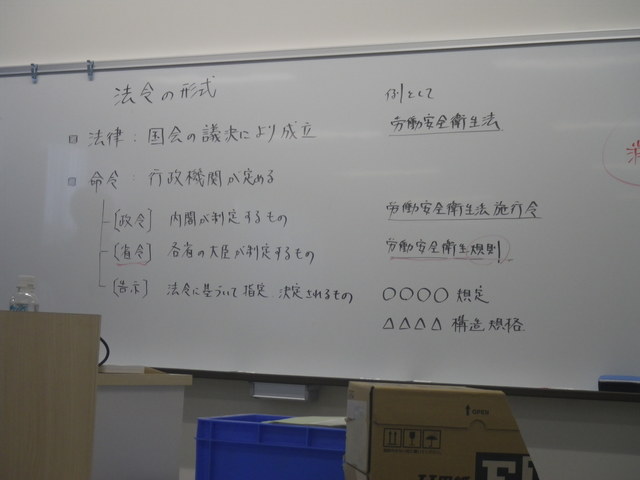 法令の形式
例として
法律：国会の議決により成立
労働安全衛生法
命令：行政機関が定める
[政令] 内閣が制定するもの
労働安全衛生法施行令
[省令] 各省の大臣が制定するもの
労働安全衛生規則
[告示] 法令に基づいて指定 決定されるもの
○○○○ 規定
△△△△ 構造規格